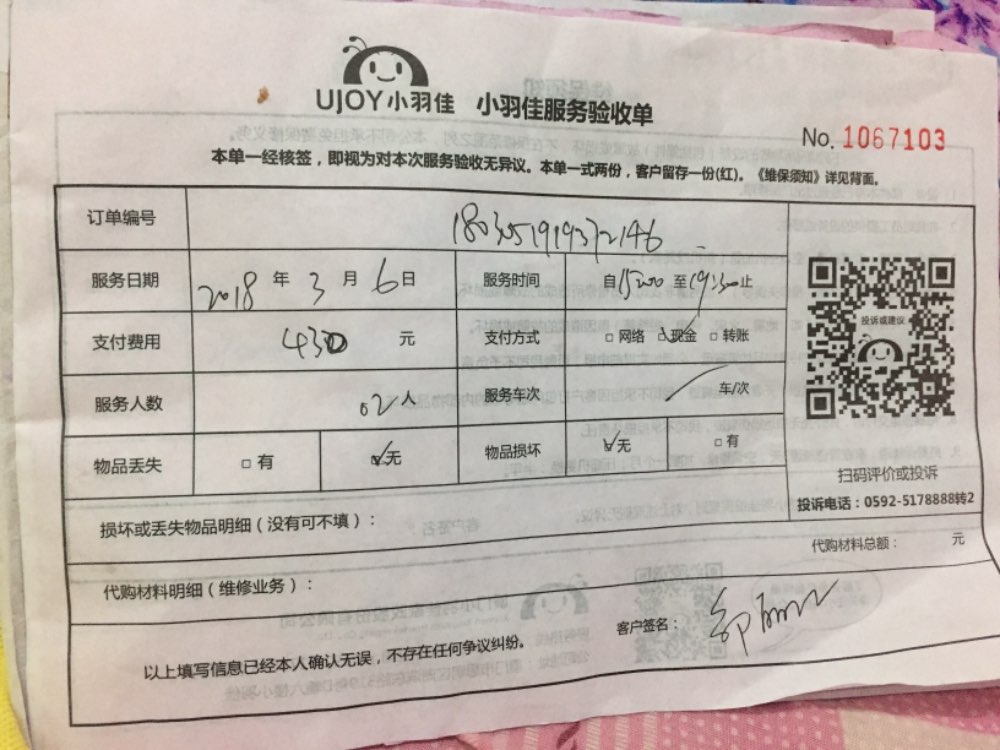 UJOY小羽佳 小羽佳服务验收单
No. 1067103
本单一经核签，即视为对本次服务验收无异议。本单一式两份，客户留存一份(红)。《维保须知》详见背面。
订单编号
服务日期 2018 年 3 月 6 日 服务时间 自15:00 至19:30止
支付费用 430 元 支付方式 □ 网络 ☑现金 □ 转账
投诉或建议
服务人数 02 人 服务车次 车/次
物品丢失 □ 有 ☑无 物品损坏 ☑无 □ 有
扫码评价或投诉
投诉电话：0592-5178888转2
损坏或丢失物品明细（没有可不填）：
代购材料总额： 元
代购材料明细（维修业务）：
客户签名：
以上填写信息已经本人确认无误，不存在任何争议纠纷。